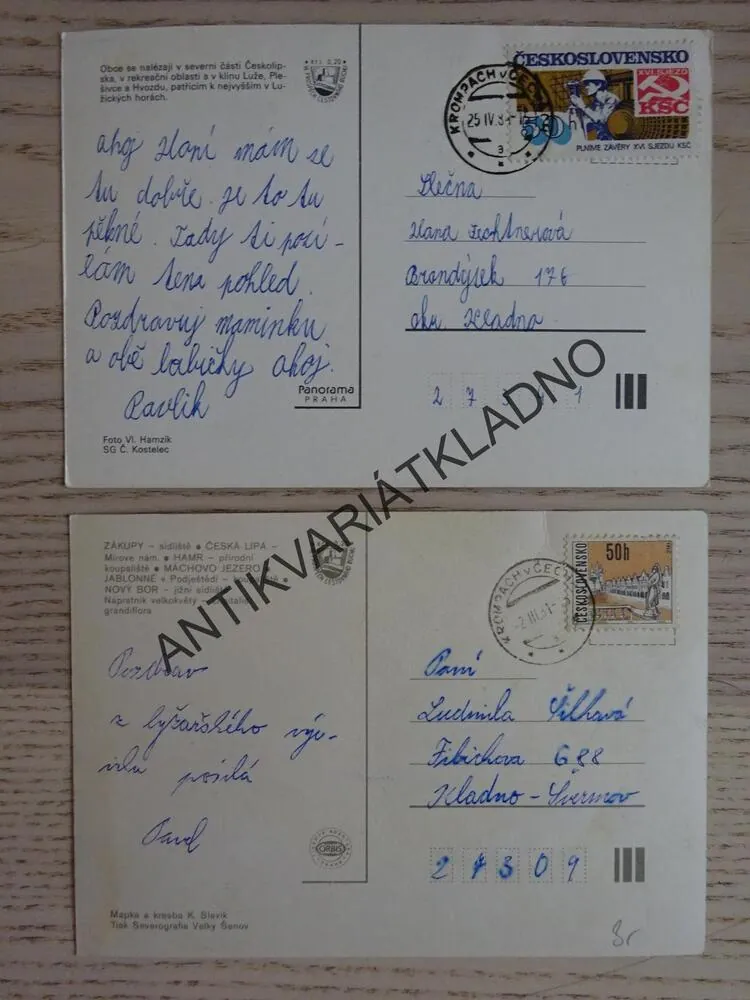 Obce se nalézají v severní části Českolip-
ska, v rekreační oblasti a v klínu Luže, Ple-
šivce a Hvozdu, patřícím k nejvyšším v Lu-
žických horách.
ahoj Haní mám se
tu dobře. je to tu
pěkné. Tady ti posí-
lám tena pohled.
Pozdravuj maminku
a obě babičky ahoj.
Pavlík
Panorama
PRAHA
Foto Vl. Hamzík
SG Č. Kostelec
KROMPACH v ČECH
25 IV 8
ČESKOSLOVENSKO
XVI. SJEZD
KSČ
50
PLNÍME ZÁVĚRY XVI. SJEZDU KSČ
Slečna
Hana Fechtnerová
Brandýsek 176
okr. Kladno
2 7 3 4 1
ANTIKVARIÁTKLADNO
ZÁKUPY – sídliště • ČESKÁ LÍPA –
Mírové nám. • HAMR – přírodní
koupaliště • MÁCHOVO JEZERO •
JABLONNÉ v Podještědí – koupaliště •
NOVÝ BOR – jižní sídliště
Náprstník velkokvětý –
grandiflora
Pozdrav
z lyžařského výc-
viku posílá
Pavel
ORBIS
Mapka a kresba K. Slavík
Tisk Severografia Velký Šenov
KROMPACH v ČECH
-2.III.81-
50h
ČESKOSLOVENSKO
Paní
Ludmila Šilhavá
Fibichova 688
Kladno – Švermov
2 7 3 0 9